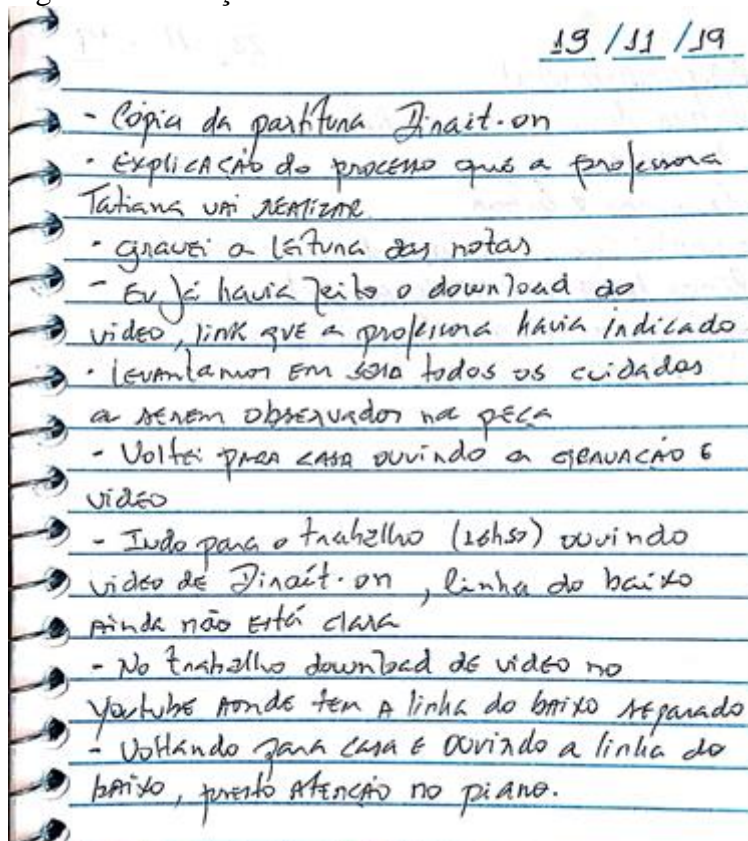 19/11/19
- Cópia da partitura Dirait-on
- Explicação do processo que a professora
Tatiana vai realizar
- gravei a leitura das notas
- Eu já havia feito o download do
video, link que a professora havia indicado
- levantamos em sala todos os cuidados
a serem observados na peça
- Voltei para casa ouvindo a gravação e
video
- Indo para o trabalho (16h50) ouvindo
video de Dirait-on, linha do baixo
ainda não está clara
- No trabalho download de video no
Youtube aonde tem a linha do baixo separado
- Voltando para casa e ouvindo a linha do
baixo, presto atenção no piano.